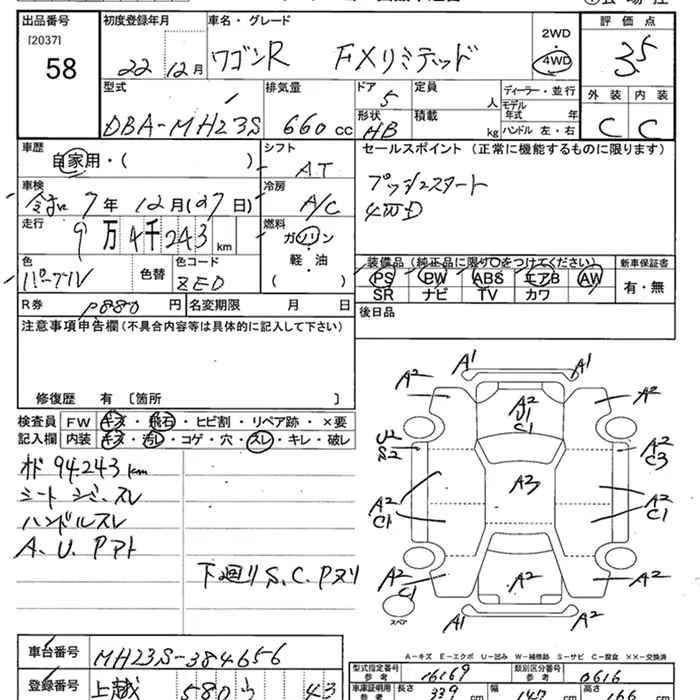 出品番号 初度登録年月 車名・グレード 評価点
[2037]
58
22年12月 ワゴンR FXリミテッド 2WD 4WD 3.5
型式 排気量 ドア 定員 ディーラー・並行 外装 内装
DBA-MH23S 660cc 5 人 モデル年式 年
形状 積載 ハンドル 左・右
HB kg C C
車歴 シフト セールスポイント(正常に機能するものに限ります)
自家用・( ) AT プッシュスタート
車検 冷房 4WD
令和7年12月(27日) A/C
走行 燃料
9万4千243km ガソリン
色 色替 色コード 軽・油 装備品(純正品に限り○をつけてください) 新車保証書
パープル ZED ( ) PS PW ABS エアB AW 有・無
R券 円 名変期限 月 日 SR ナビ TV カワ
後日品
注意事項申告欄(不具合内容等は具体的に記入して下さい)
修復歴 有〔箇所 〕
検査員 FW キズ・飛石・ヒビ割・リペア跡・×要
記入欄 内装 キズ・汚レ・コゲ・穴・スレ・キレ・破レ
オド 94.243km
シート シミ・スレ
ハンドルスレ
A.U.Pアト
下廻りS.C.Pヌリ
A1 A1
A2 A2 A2
U1
C1
U2 A2
S2 C3
A2 A3 A2
C1 C1
A2 A2 A2
C1
スペア A1 A1
A-キズ E-エクボ U-凹み W-補修跡 S-サビ C-腐食 ××-交換済
車台番号 MH23S-384656
型式指定番号 参考 16169 類別区分番号 参考 0616
登録番号 上越 580 ウ 43
車庫証明用 参考 長さ 339cm 幅 147cm 高さ 166cm